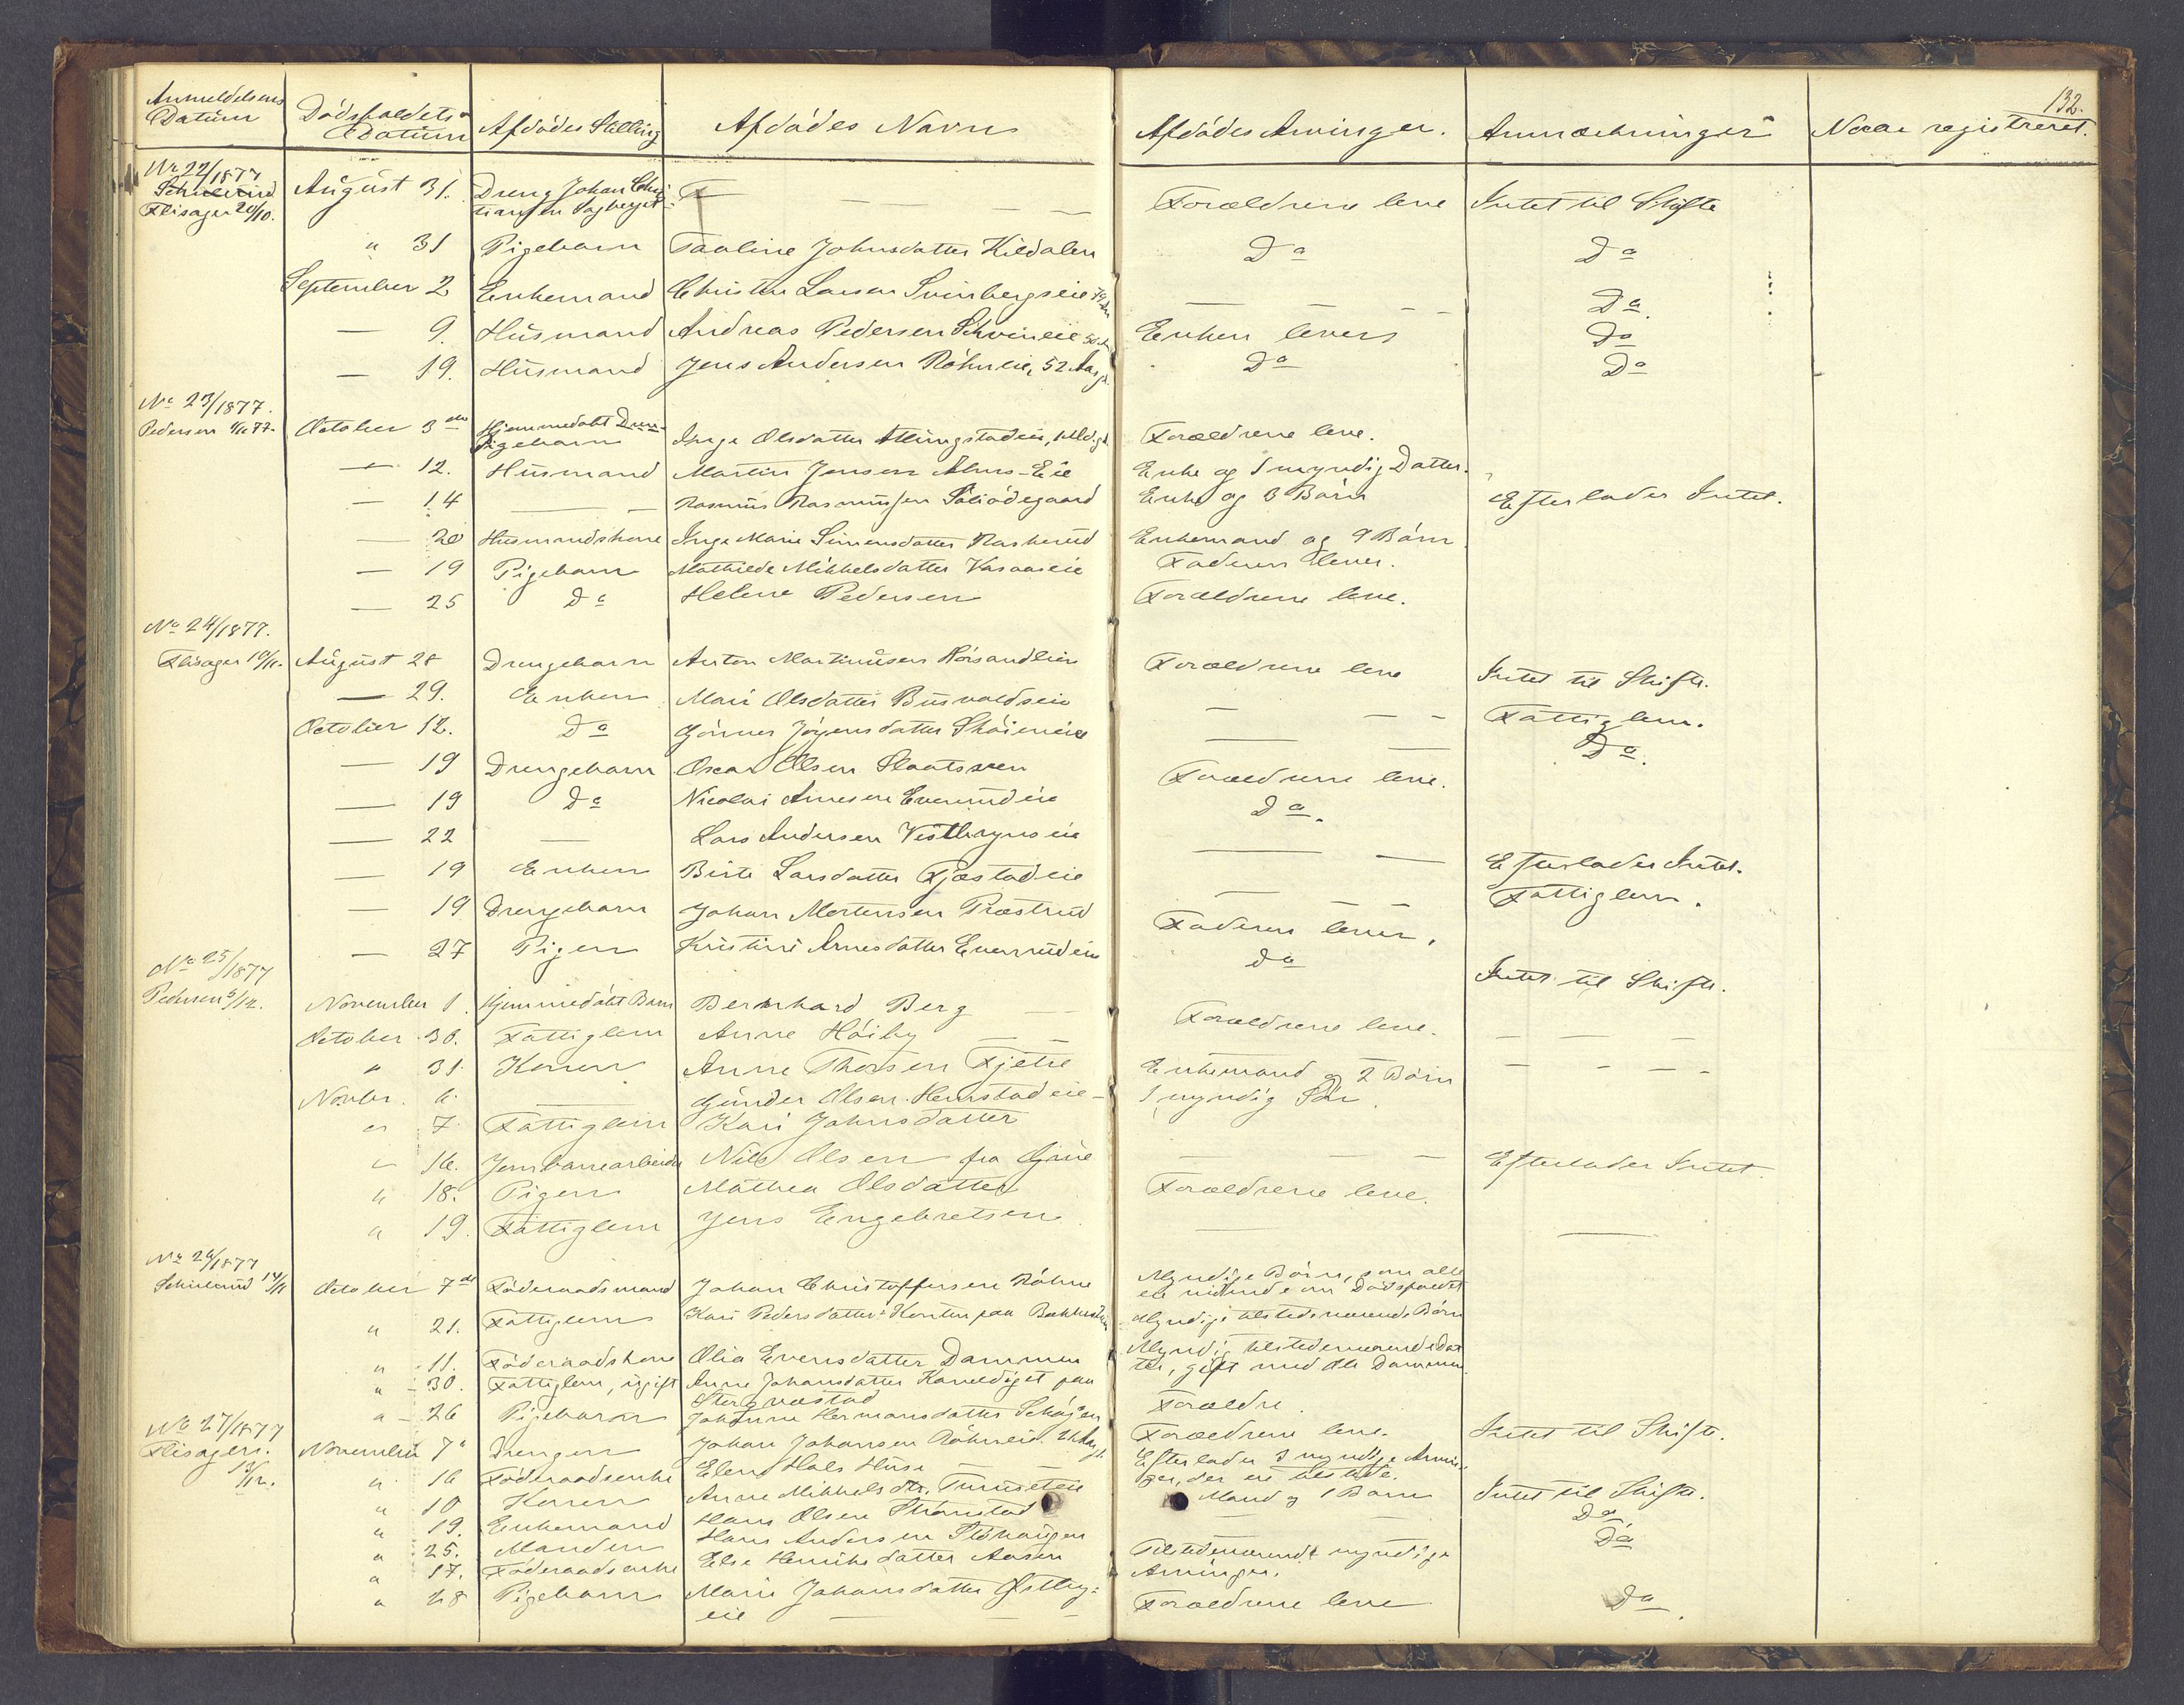 132.
Anmeldelsens Datum | Dødsfaldets Datum | Afdødes Stilling | Afdødes Navn | Afdødes Arvinger. | Anmærkninger | Naar registreret.
No 22/1877
Flisager 20/10. | August 31. | Dreng Johan Chris-
tiansen Sagberget | Forældrene leve | Intet til Skifte
" 31 | Pigebarn | Pauline Johnsdatter Kildalen | Do | Do
September 2 | Enkemand | Christen Larsen Svinbergseie | Do.
— 9. | Husmand | Andreas Pedersen | Enken lever | Do
— 19. | Husmand | Jens Andersen Røhneeie, 52 Aar gl. | Do | Do
No 23/1877.
Pedersen | October 3die | Hjemmedøbt
Pigebarn | Inge Olsdatter | Forældrene leve.
— 12. | Husmand | Martin Jensen Alms-Eie | Enke og 1 myndig Datter.
— 14 | — | Rasmus Rasmussen | Enke og 3 Børn | Efterlader Intet.
— 20 | Husmandskone | Inge Marie Simensdatter | Enkemand og 9 Børn
— 19 | Pigebarn | Mathilde Mikkelsdatter | Faderen lever.
— 25 | Do | Helene Pedersen | Forældrene leve.
No 24/1877.
Flisager 10/11. | August 28 | Drengebarn | Anton Martinusen | Forældrene leve | Intet til Skifte.
— 29. | Enken | Mari Olsdatter | — | Fattiglem.
October 12. | Do | Jørgensdatter | — | Do.
— 19 | Drengebarn | Oscar Olsen | Forældrene leve.
— 19 | Do | Nicolai Arnesen Evenrudeie | Do.
— 22 | — | Lars Andersen | — | Efterlader Intet.
— 19 | Enken | Birte Larsdatter Fjæstadeie | — | Fattiglem.
— 19 | Drengebarn | Johan Mortensen Præstrud | Faderen lever.
— 27 | Pigen | Kristine Arnesdatter Evenrudeie | do | Intet til Skifte.
No 25/1877
Pedersen 5/12. | November 1. | Hjemmedøbt Barn | Bernhard Berg | Forældrene leve.
October 30. | Fattiglem | Anne Høiby
" 31. | Konen | Anne Thorsen Fjetre | Enkemand og 2 Børn
Novbr. 6. | — | Gunder Olsen Hemstadeie | 1 myndig Søn.
" 7. | Fattiglem | Kari Johnsdatter
" 16. | Jernbanearbeider | Nils Olsen fra | — | Efterlader Intet.
" 18. | Pigen | Mathea Olsdatter | Forældrene leve.
" 19. | Fattiglem | Jens Engebretsen | — | —
No 26/1877
October 7de | Føderaadsmand | Johan Christoffersen Røhne | Myndige Børn, som alle
ere vidende om Dødsfaldet
" 21. | Fattiglem | Kari Pedersdatter | Myndige tilstedeværende Børn
" 11. | Føderaadskone | Olia Evensdatter Dammen | Myndig tilstedeværende Dat-
ter, gift med Ole Dammen
" 30. | Fattiglem, ugift | Anne Johansdatter paa
" 26 | Pigebarn | Johanne Hermansdatter | Forældre.
No 27/1877
Flisager. | November 7. | Drengen | Johan Johansen Røhneeie. | Forældrene leve. | Intet til Skifte.
" 16 | Føderaadsenke | Elen | Efterlader 3 myndige Arvin-
ger, der ere tilstede.
" 10 | Konen | Anne Mikkelsdtr. | Mand og 1 Barn | Intet til Skifte.
" 19. | Enkemand | Hans Olsen | — | Do.
" 25. | Manden | Hans Andersen | Do
" 17. | Føderaadsenke | Else Henriksdatter Aasen | Tilstedeværende myndige
Arvinger.
" 28 | Pigebarn | Marie Johansdatter Østby-
eie | Forældrene leve | Do.